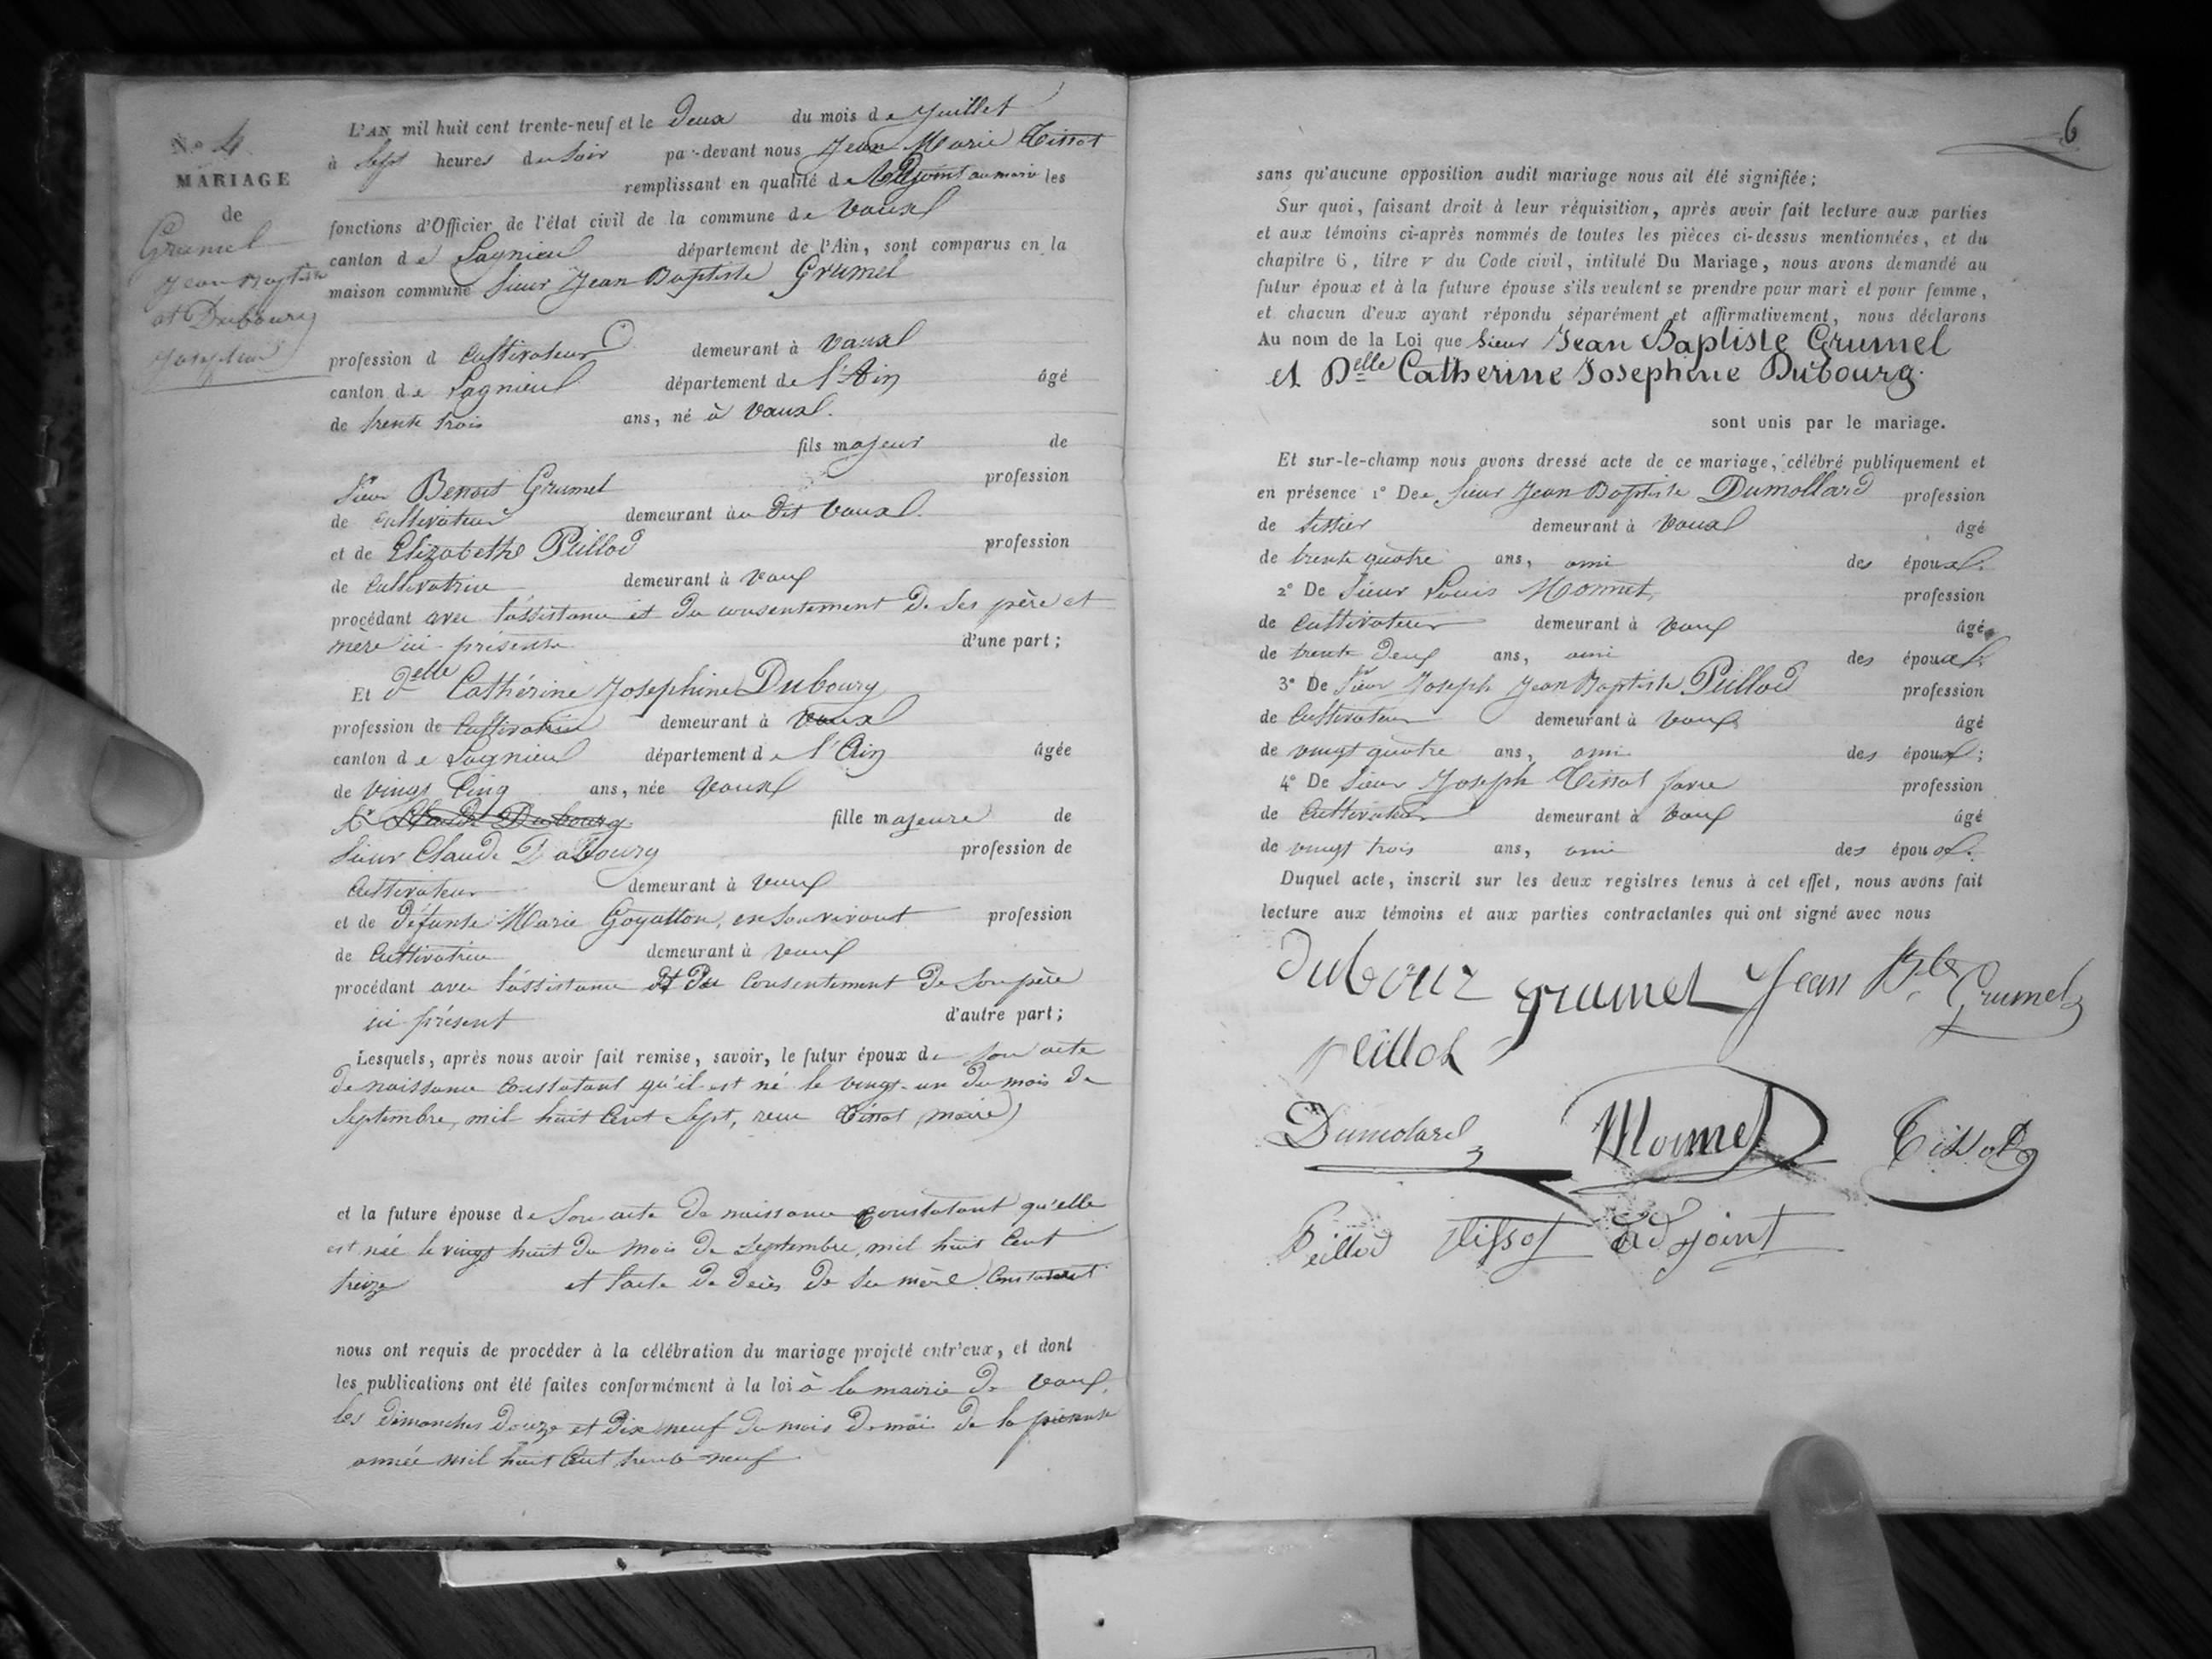 N.o 4.
MARIAGE
de
Grumel
Jean Baptiste
et Dubourg
Josephine
L'AN mil huit cent trente-neuf et le deux du mois de Juillet
à Sept heures du Soir par-devant nous Jean Marie Tissot
remplissant en qualité de Adjoint au maire les
fonctions d'Officier de l'état civil de la commune de Vaux
canton de Lagnieu département de l'Ain, sont comparus en la
maison commune Sieur Jean Baptiste Grumel
profession d Cultivateur demeurant à Vaux
canton de Lagnieu département de l'Ain âgé
de trente trois ans, né à Vaux.
fils majeur de
Sieur Benoit Grumel profession
de Cultivateur demeurant àu dit Vaux.
et de Elizabethe Peillod profession
de Cultivatrice demeurant à Vaux
procédant avec l'assistance et du consentement de Ses père et
mère ici présents d'une part;
Et delle Cathérine Josephine Dubourg
profession de Cultivatrice demeurant à Vaux
canton de Lagnieu département de l'Ain âgée
de vingt Cinq ans, née Vaux
Sr Claude Dubourg fille majeure de
Sieur Claude Dubourg profession de
Cultivateur demeurant à Vaux
et de défunte Marie Goyatton, en Son vivant profession
de Cultivatrice demeurant à Vaux
procédant avec l'assistance et du Consentement de Son père
ici présent d'autre part;
Lesquels, après nous avoir fait remise, savoir, le futur époux de Son acte
de naissance Constatant qu'il est né le vingt-un du mois de
Septembre, mil huit Cent Sept, reçu Tissot, maire)
et la future épouse de Son acte de naissance Constatant qu'elle
est née le vingt huit du mois de Septembre, mil huit Cent
treize et l'acte de décès de sa mère Constatant
nous ont requis de procéder à la célébration du mariage projeté entr'eux, et dont
les publications ont été faites conformément à la loi à la mairie de Vaux,
les dimanches douze et dix neuf du mois de mai de la présente
année mil huit Cent trente neuf
6
sans qu'aucune opposition audit mariage nous ait été signifiée;
Sur quoi, faisant droit à leur réquisition, après avoir fait lecture aux parties
et aux témoins ci-après nommés de toutes les pièces ci-dessus mentionnées, et du
chapitre 6, titre v du Code civil, intitulé Du Mariage, nous avons demandé au
futur époux et à la future épouse s'ils veulent se prendre pour mari et pour femme,
et chacun d'eux ayant répondu séparément et affirmativement, nous déclarons
Au nom de la Loi que Sieur Jean Baptiste Grumel
et Delle Catherine Josephine Dubourg.
sont unis par le mariage.
Et sur-le-champ nous avons dressé acte de ce mariage, célébré publiquement et
en présence 1º De Sieur Jean Baptiste Dumollard profession
de tissier demeurant à Vaux âgé
de trente quatre ans, ami des époux.
2º De Sieur Louis Monnet, profession
de Cultivateur demeurant à Vaux âgé
de trente deux ans, ami des époux.
3º De Sieur Joseph Jean Baptiste Peillod profession
de Cultivateur demeurant à Vaux âgé
de vingt quatre ans, ami des époux;
4º De Sieur Joseph Tissot favre profession
de Cultivateur demeurant à Vaux âgé
de vingt trois ans, ami des époux.
Duquel acte, inscrit sur les deux registres tenus à cet effet, nous avons fait
lecture aux témoins et aux parties contractantes qui ont signé avec nous
Dubour grumel Jean Bte Grumel
peillod
Dumolard Monnet Tissot
Peillod Tissot Adjoint